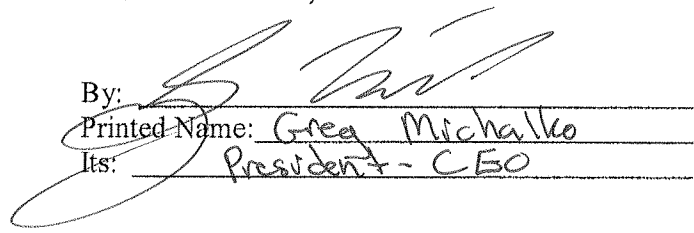 By:
Printed Name: Greg Michalko
Its: President - CEO